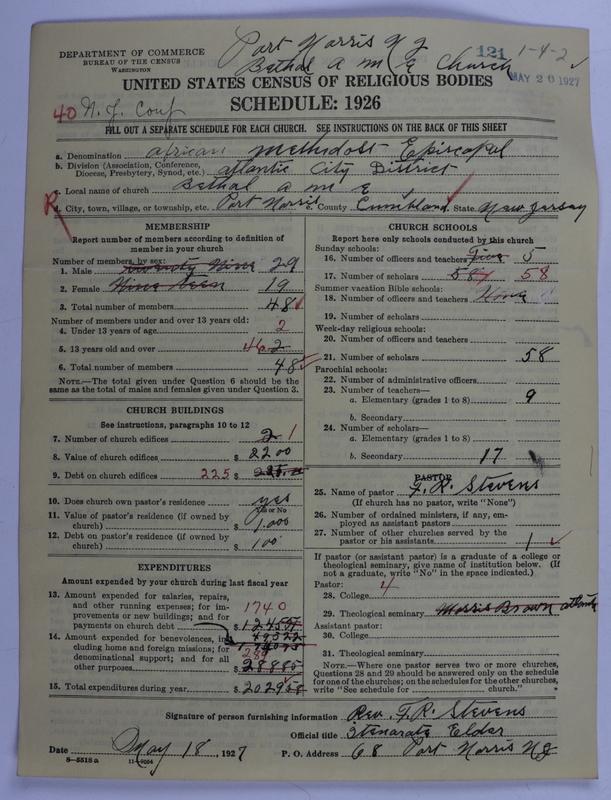 Port Norris N J
Bethal a m E Church
121 1-4-2
MAY 20 1927
DEPARTMENT OF COMMERCE
BUREAU OF THE CENSUS
WASHINGTON
UNITED STATES CENSUS OF RELIGIOUS BODIES
40 N. J. Conf
SCHEDULE: 1926
FILL OUT A SEPARATE SCHEDULE FOR EACH CHURCH. SEE INSTRUCTIONS ON THE BACK OF THIS SHEET
a. Denomination african methodost Episcopel
b. Division (Association, Conference, Diocese, Presbytery, Synod, etc.) atlantic City District
c. Local name of church Bethal a m E
R
d. City, town, village, or township, etc. Port Norris e. County Cumbland State New Jersey
MEMBERSHIP
Report number of members according to definition of
member in your church
Number of members, by sex:
1. Male twenty Nine 29
2. Female Nine teen 19
3. Total number of members 48
Number of members under and over 13 years old:
4. Under 13 years of age 2
5. 13 years old and over 46 2
6. Total number of members 48
NOTE.—The total given under Question 6 should be
same as the total of males and females given under Question 3.
CHURCH BUILDINGS
See instructions, paragraphs 10 to 12
7. Number of church edifices 2 1
8. Value of church edifices $ 2200
9. Debt on church edifices 225 $
10. Does church own pastor's residence yes
Yes or No
11. Value of pastor's residence (if owned by
church) $ 1,000
12. Debt on pastor's residence (if owned by
church) $ 100
EXPENDITURES
Amount expended by your church during last fiscal year
13. Amount expended for salaries, repairs,
and other running expenses; for im-
provements or new buildings; and for
payments on church debt 1740 $
14. Amount expended for benevolences, in-
cluding home and foreign missions; for
denominational support; and for all
other purposes 289 $ 28885
15. Total expenditures during year $ 202958
CHURCH SCHOOLS
Report here only schools conducted by this church
Sunday schools:
16. Number of officers and teachers five 5
17. Number of scholars 58 58
Summer vacation Bible schools:
18. Number of officers and teachers None
19. Number of scholars
Week-day religious schools:
20. Number of officers and teachers
21. Number of scholars 58
Parochial schools:
22. Number of administrative officers
23. Number of teachers—
a. Elementary (grades 1 to 8) 9
b. Secondary
24. Number of scholars—
a. Elementary (grades 1 to 8)
b. Secondary 17
PASTOR
25. Name of pastor F. R. Stevens
(If church has no pastor, write "None")
26. Number of ordained ministers, if any, em-
ployed as assistant pastors
27. Number of other churches served by the
pastor or his assistants 1
If pastor (or assistant pastor) is a graduate of a college or
theological seminary, give name of institution below. (If
not a graduate, write "No" in the space indicated.)
Pastor: 4
28. College
29. Theological seminary Morris Brown atlanta
Assistant pastor:
30. College
31. Theological seminary
NOTE.—Where one pastor serves two or more churches,
Questions 28 and 29 should be answered only on the schedule
for one of the churches; on the schedules for the other churches,
write "See schedule for church."
Signature of person furnishing information Rev. F. R. Stevens
Official title Itenarate Elder
Date May 18 1927 P. O. Address 68 Port Norris N J
8—5518 a 11—9094